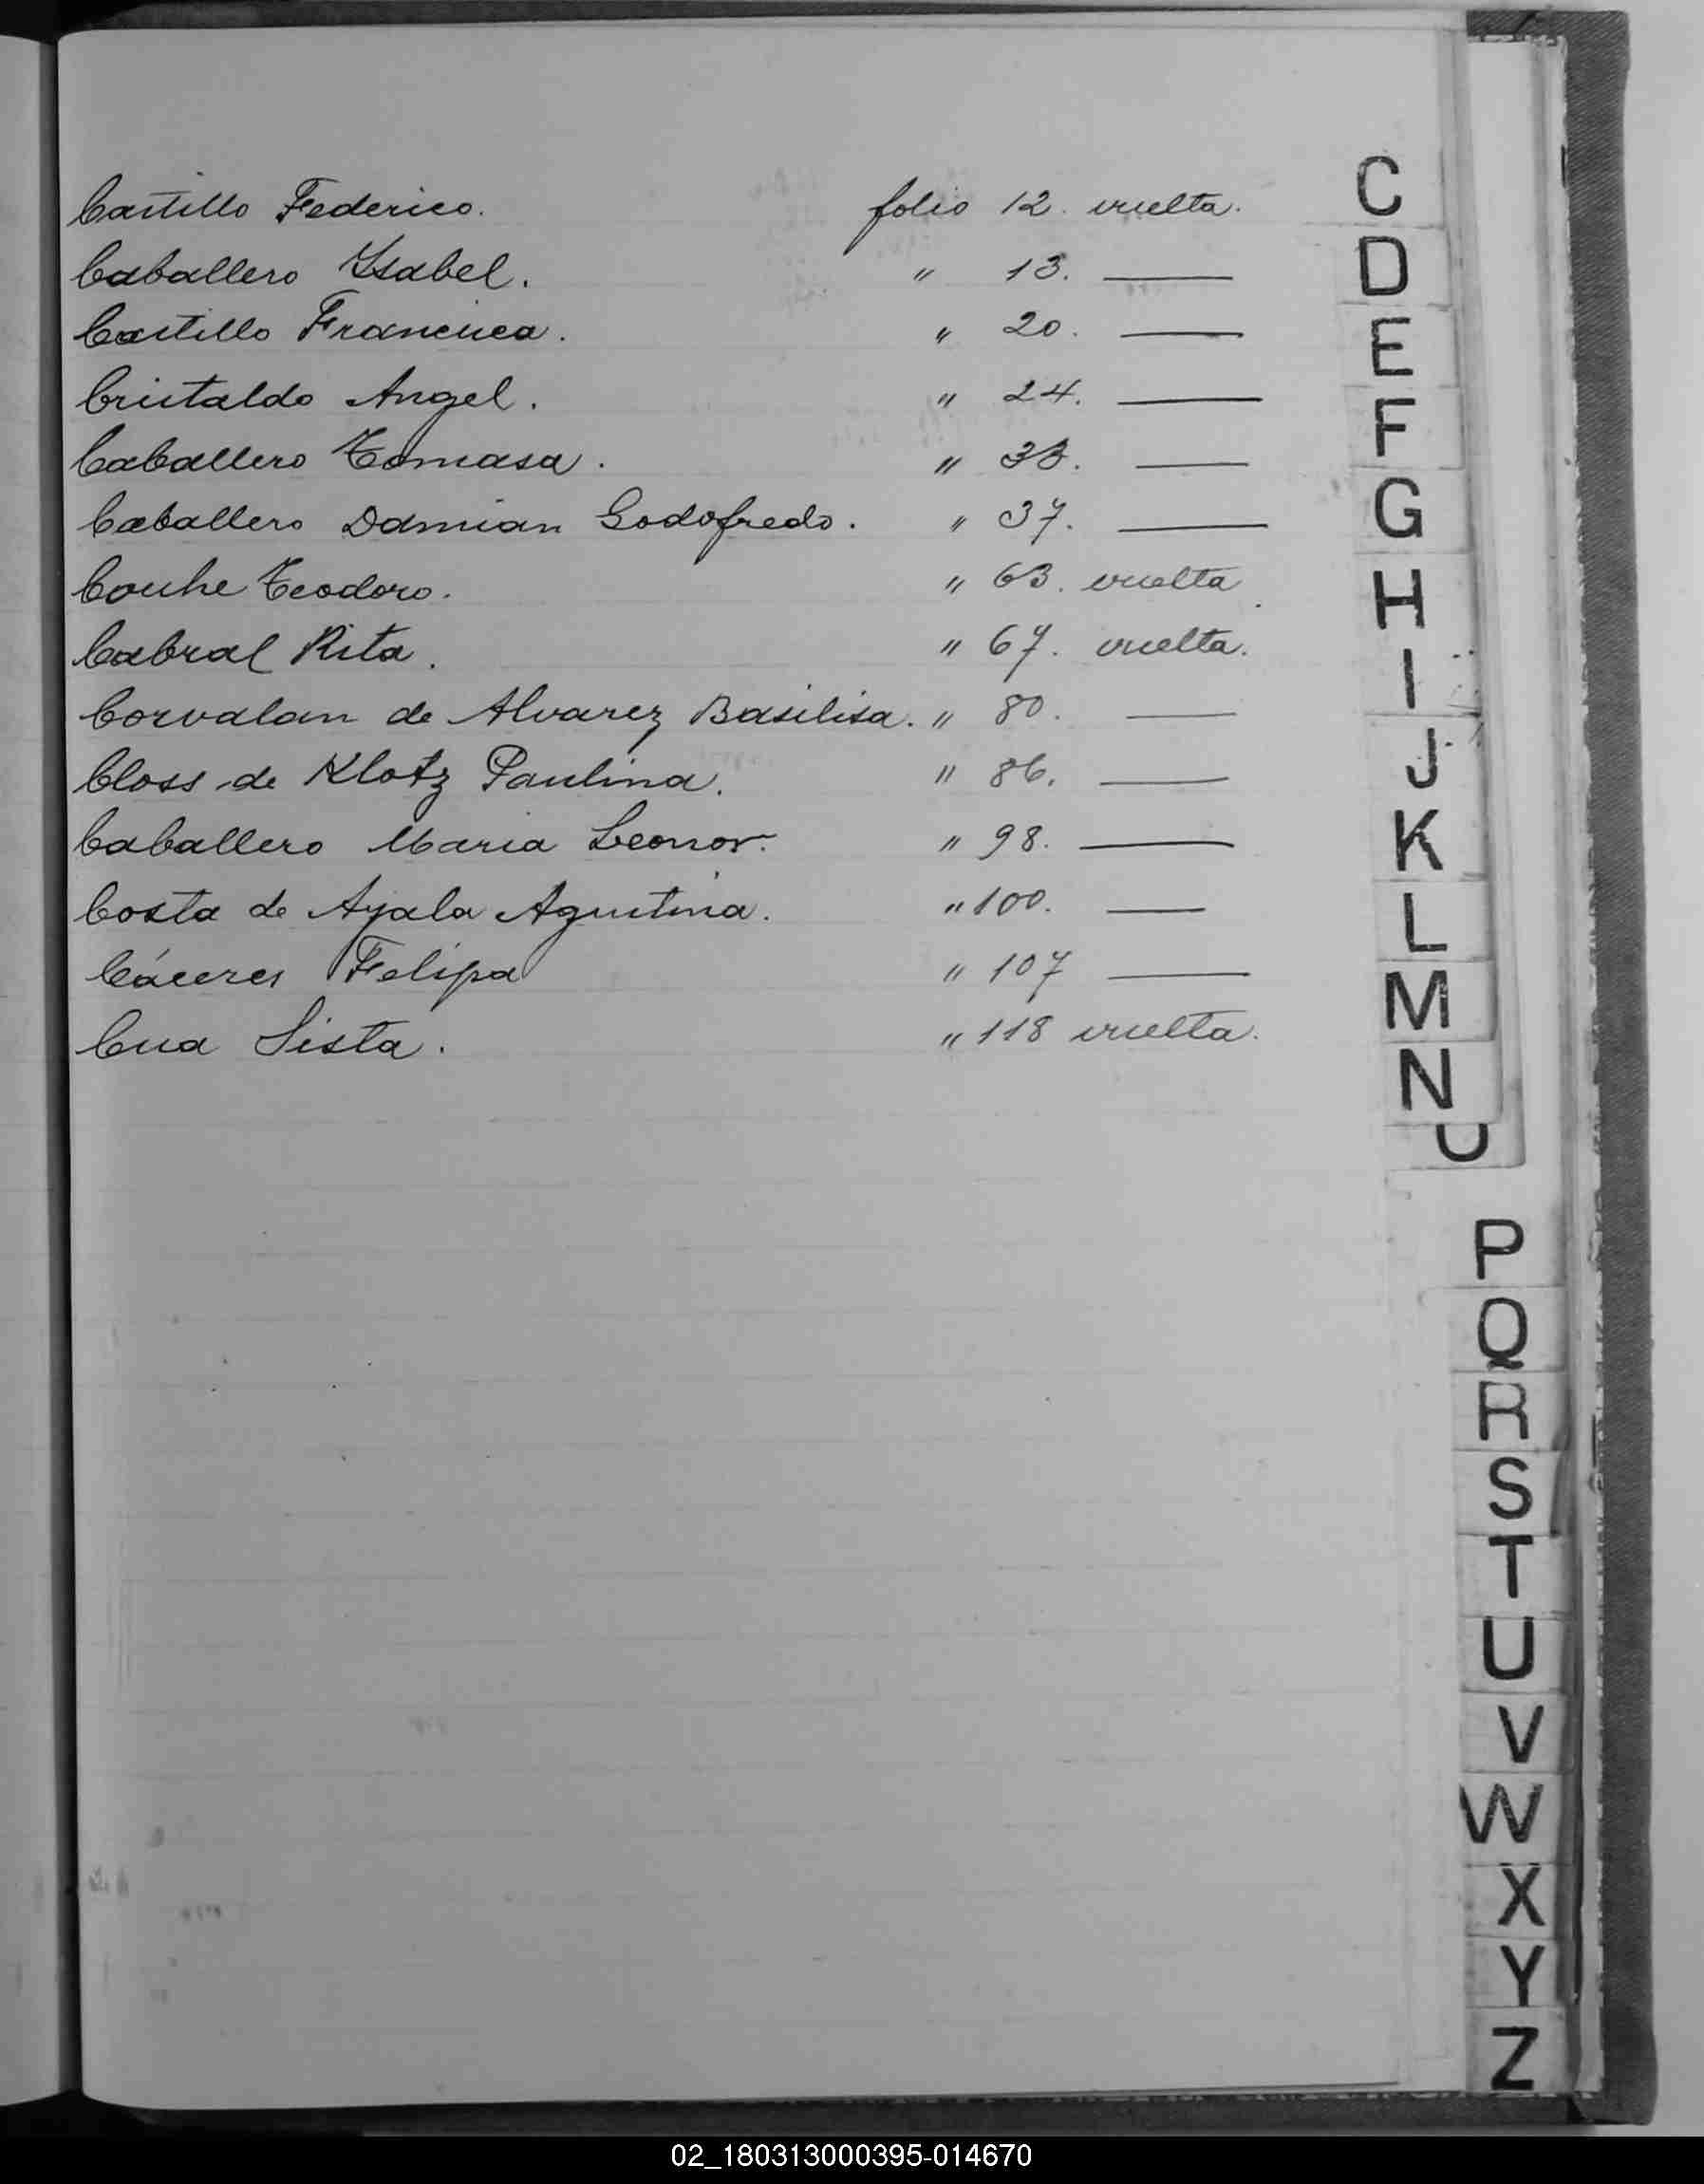 Castillo Federico. folio 12. vuelta.
Caballero Ysabel. " 13. ———
Castillo Francisca. " 20. ———
Cristaldo Angel. " 24. ———
Caballero Tomasa. " 33. ———
Caballero Damian Godofredo. " 37. ———
Teodoro. " 63. vuelta
Cabral Rita. " 67. vuelta.
Corvalan de Alvarez Basilisa. " 80. ———
Closs de Klotz Paulina. " 86. ———
Caballero Maria Leonor. " 98. ———
Costa de Ayala Agustina. " 100. ———
Cáceres Felipa " 107 ———
Cua Sista. " 118 vuelta.
C
D
E
F
G
H
I
J
K
L
M
N
P
Q
R
S
T
U
V
W
X
Y
Z
02_180313000395-014670